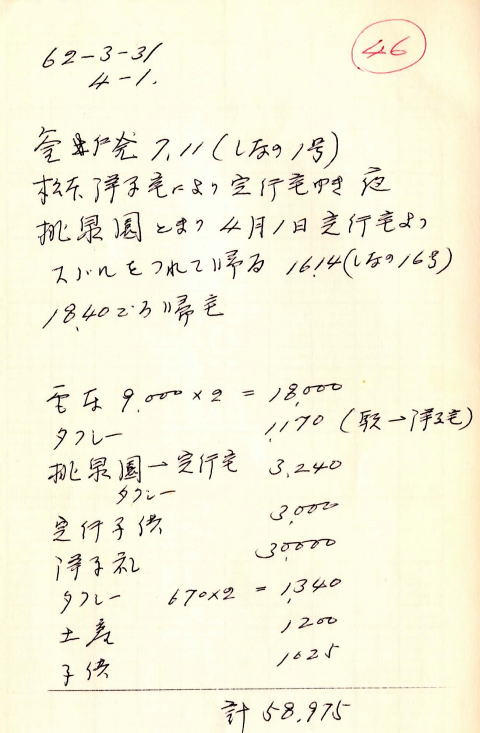 46
62-3-31
4-1.
発 7.11 (しなの1号)
松本 洋子宅により定行宅ゆき 夜
桃泉園とまり 4月1日定行宅より
スバルをつれて帰る 16.14(しなの16号)
18.40ごろ帰宅
電車 9,000×2 = 18,000
タクシー 1,170 (駅→洋子宅)
桃泉園→定行宅 3,240
タクシー
定行子供 3,000
洋子礼 30,000
タクシー 670×2 = 1,340
土産 1,200
子供 1,025
計 58,975